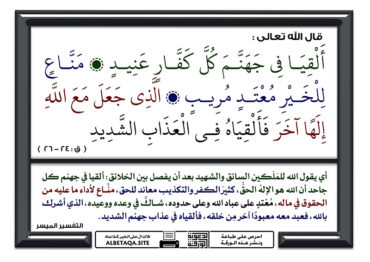 قال الله تعالى :
أَلْقِيَا فِى جَهَنَّمَ كُلَّ كَفَّارٍ عَنِيدٍ ۞ مَنَّاعٍ
لِلْخَيْرِ مُعْتَدٍ مُرِيبٍ ۞ الَّذِى جَعَلَ مَعَ اللَّهِ
إِلَهًا آخَرَ فَأَلْقِيَاهُ فِى الْعَذَابِ الشَّدِيدِ
( ق : ٢٤ – ٢٦ )
أي يقول الله للمَلَكين السائق والشهيد بعد أن يفصل بين الخلائق : ألقيا في جهنم كل
جاحد أن الله هو الإلهُ الحقُّ ، كثيرِ الكفر والتكذيب معاند للحق ، منَّاع لأداء ما عليه من
الحقوق في ماله ، مُعْتَدٍ على عباد الله وعلى حدوده ، شاكٍّ في وعده ووعيده ، الذي أشرك
بالله ، فعبد معه معبودًا آخر مِن خلقه ، فألقياه في عذاب جهنم الشديد .
التفسير الميسر
احرص على طباعة
ونشر هذه الورقة
فالدال على الخير كفاعله
ALBETAQA.SITE